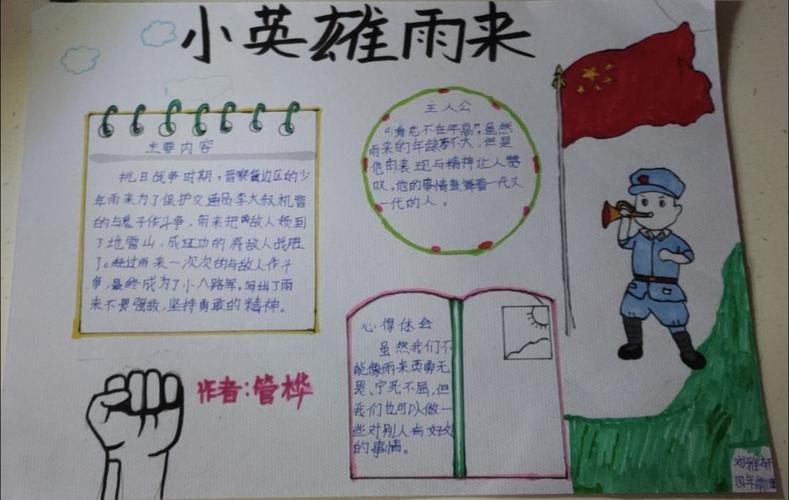 小英雄雨来
主要内容
抗日战争时期，晋察冀边区的少
年雨来为了保护交通员李大叔机智
的与鬼子作斗争，雨来把敌人领到
了地雷山，成功的将敌人战胜
了。经过雨来一次次的与敌人作斗
争，最终成为了小八路军。写出了雨
来不畏强敌，坚持勇敢的精神。
主人公
“有志不在年高”，虽然
雨来的年龄不大，但是
他的表现与精神让人赞
叹，他的事情激舞着一代又
一代的人。
心得体会
虽然我们不
能像雨来英勇无
畏、宁死不屈，但
我们也可以做一
些对别人有好处
的事情。
作者：管桦
刘雅轩
四年级